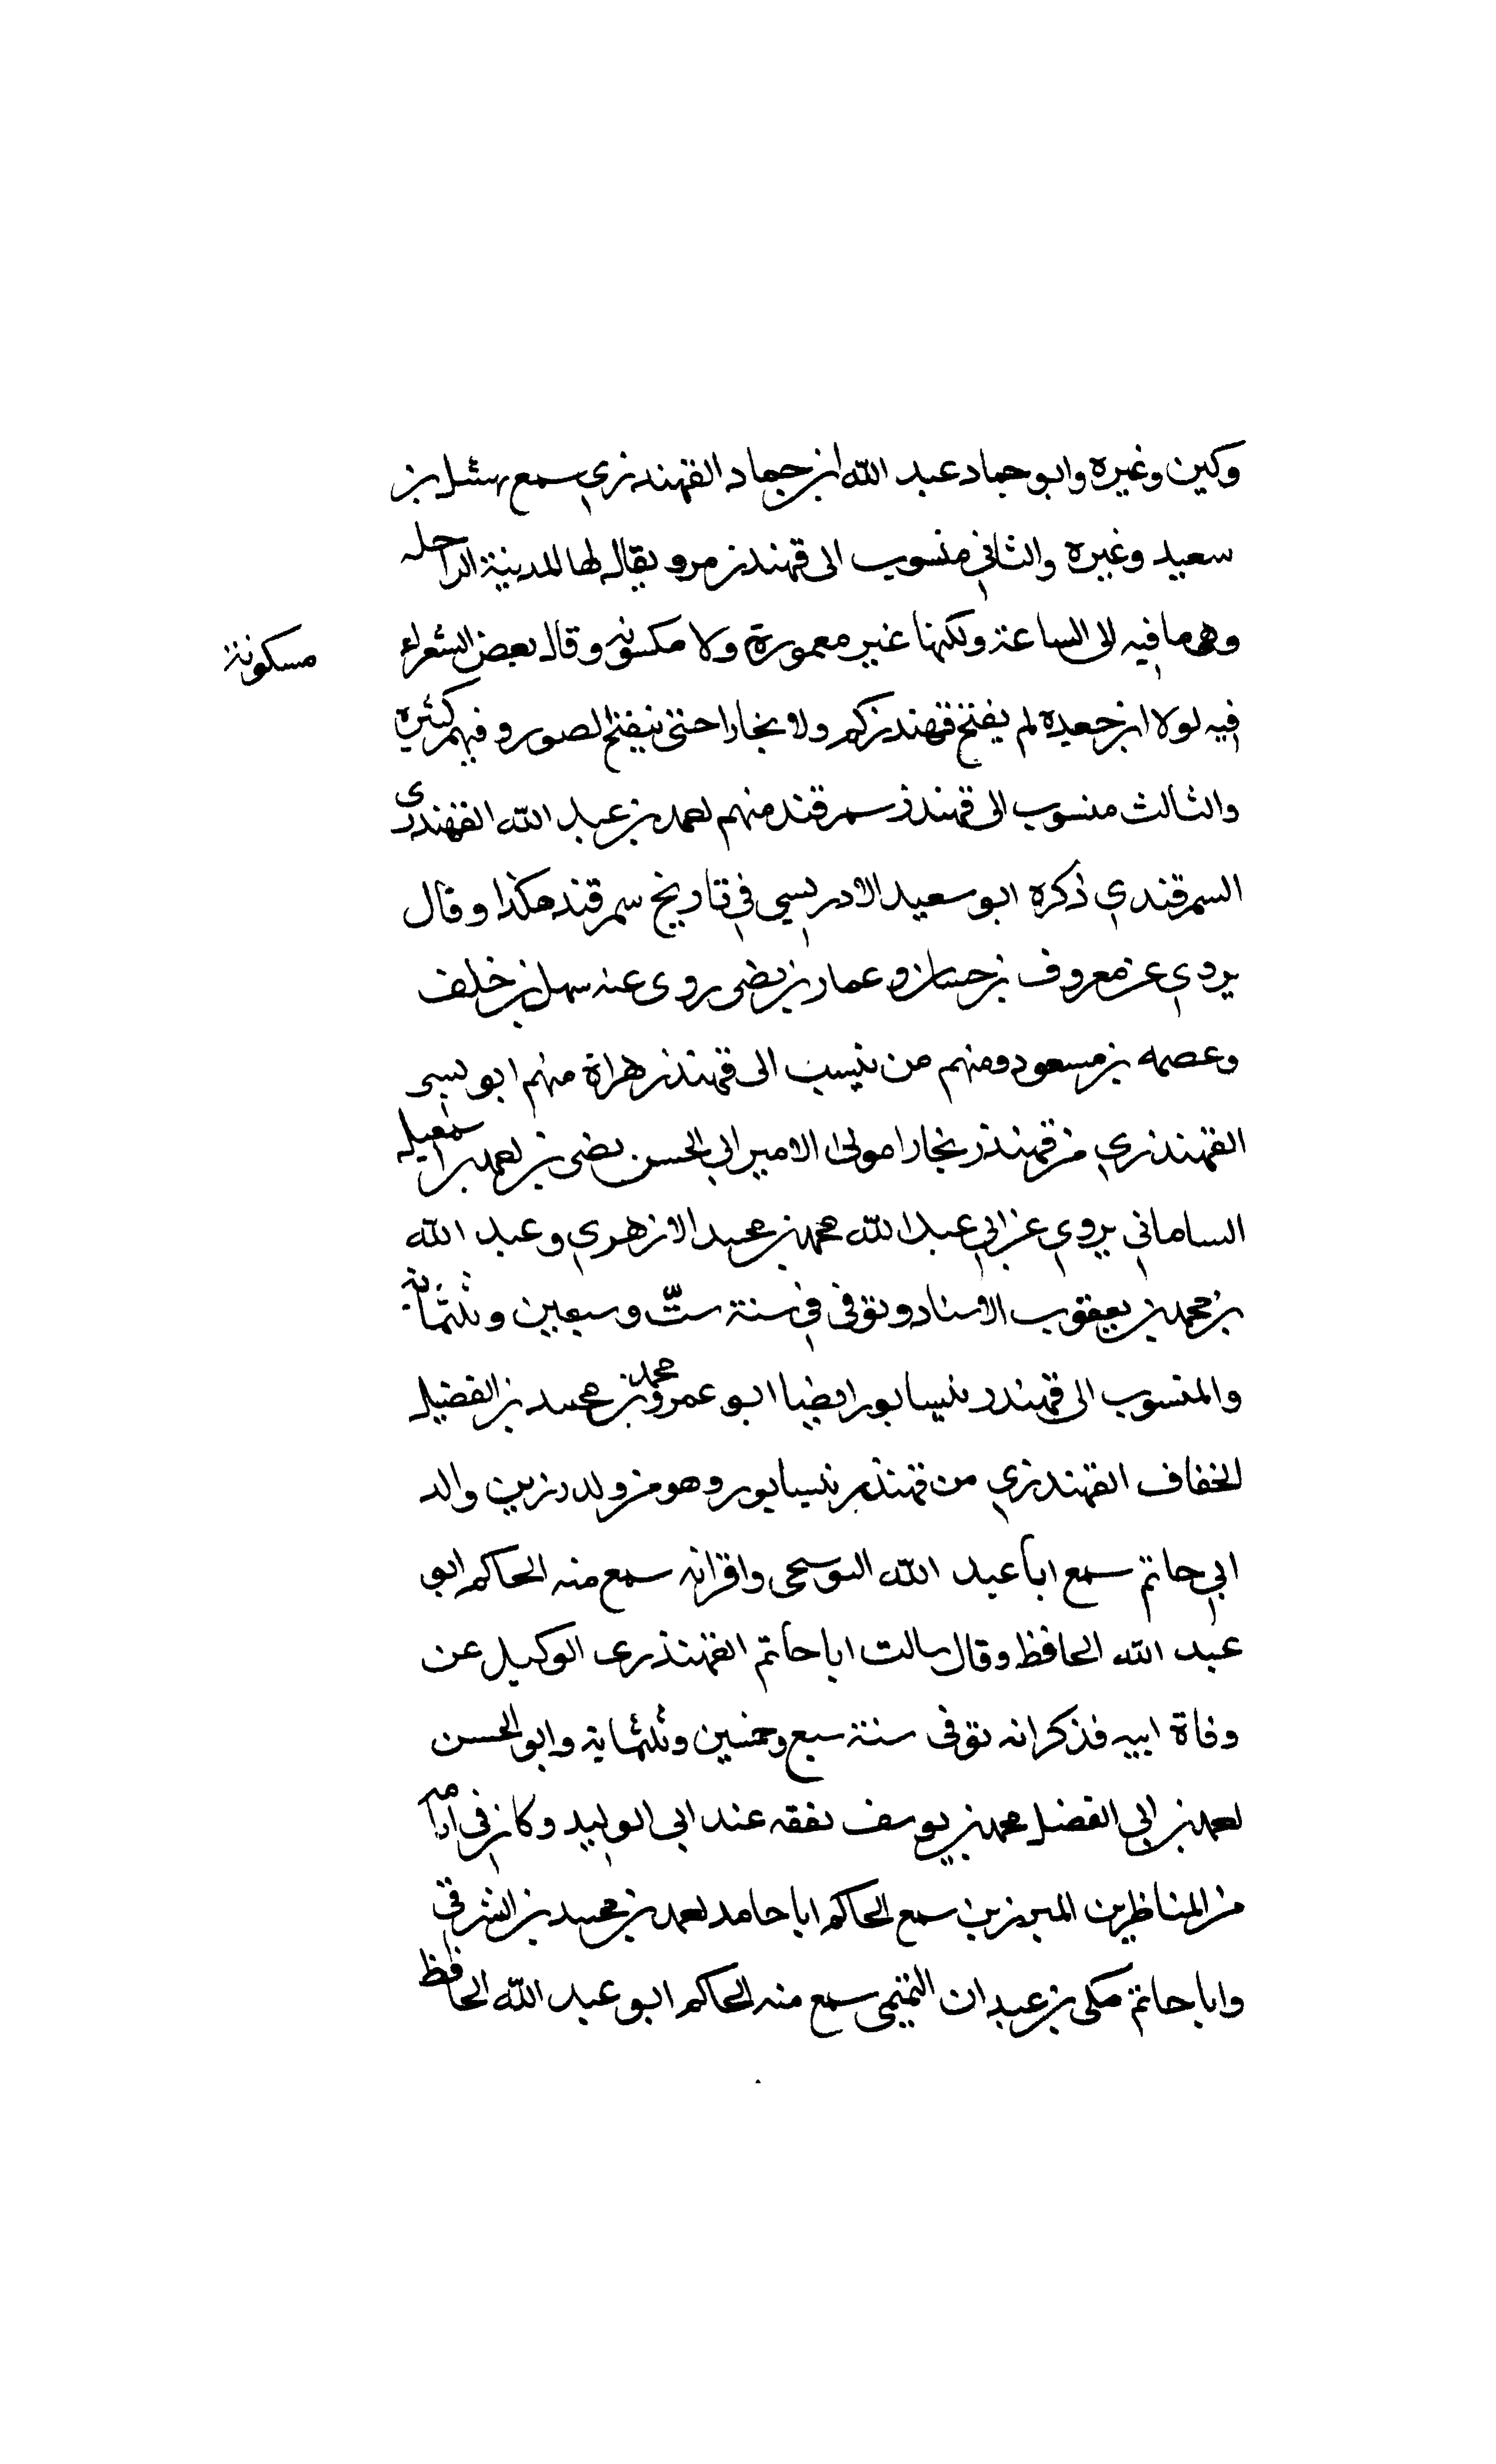 وكين وغيره وابو حماد عبد الله ابن حماد القهندزي سمع نهشل بن
سعيد وغيره والثاني منسوب الى قهندز مرو يقال لها المدينة الداخله
وهما فيه الى الساعة ولكنها غير معمورة ولا مكسونه وقال بعض الشعراء
مسكونة
فيه لولا ابن جعيده لم يفتح قهندزكم ولا بخارا حتى ينفخ الصور وفيهم كثيرة
والثالث منسوب الى قهندز سمرقند منهم احمد بن عبد الله القهندزى
السمرقندي ذكره ابو سعيد الادريسي في تاريخ سمرقند هكذا وقال
يروي عن معروف بن حسان وعمار بن نصر روى عنه سهل بن خلف
وعصمه بن مسعود ومنهم من ينسب الى قهندز هراة منهم ابو بسر
القهندزي من قهندز بخارا مولى الامير ابي الحسن نصر بن احمد بن اسمعيل
الساماني يروي عن ابي عبد الله محمد بن محمد الازهري وعبد الله
بن محمد بن يعقوب الاستاد وتوفى في سنة ستّ وسبعين وثلثمائة
والمنسوب الى قهندز نيسابور ايضا ابو عمرو محمد بن محمد بن الفضيل
الخفاف القهندزي من قهندز نيسابور وهو من ولد رزين والد
ابي حاتم سمع ابا عبد الله البوسنجى واقرانه سمع منه الحاكم ابو
عبد الله الحافظ وقال سالت ابا حاتم القهنذرى الوكيل عن
وفاة ابيه فذكر انه توفى سنة سبع وخمسين وثلثماية وابو الحسن
احمد بن ابي الفضل محمد بن يوسف تفقه عند ابي الوليد وكان في
من المناظرين المبرزين سمع الحاكم ابا حامد احمد بن محمد بن الشرقي
وابا حاتم مكى بن عبدان التميمى سمع منه الحاكم ابو عبد الله الحافظ